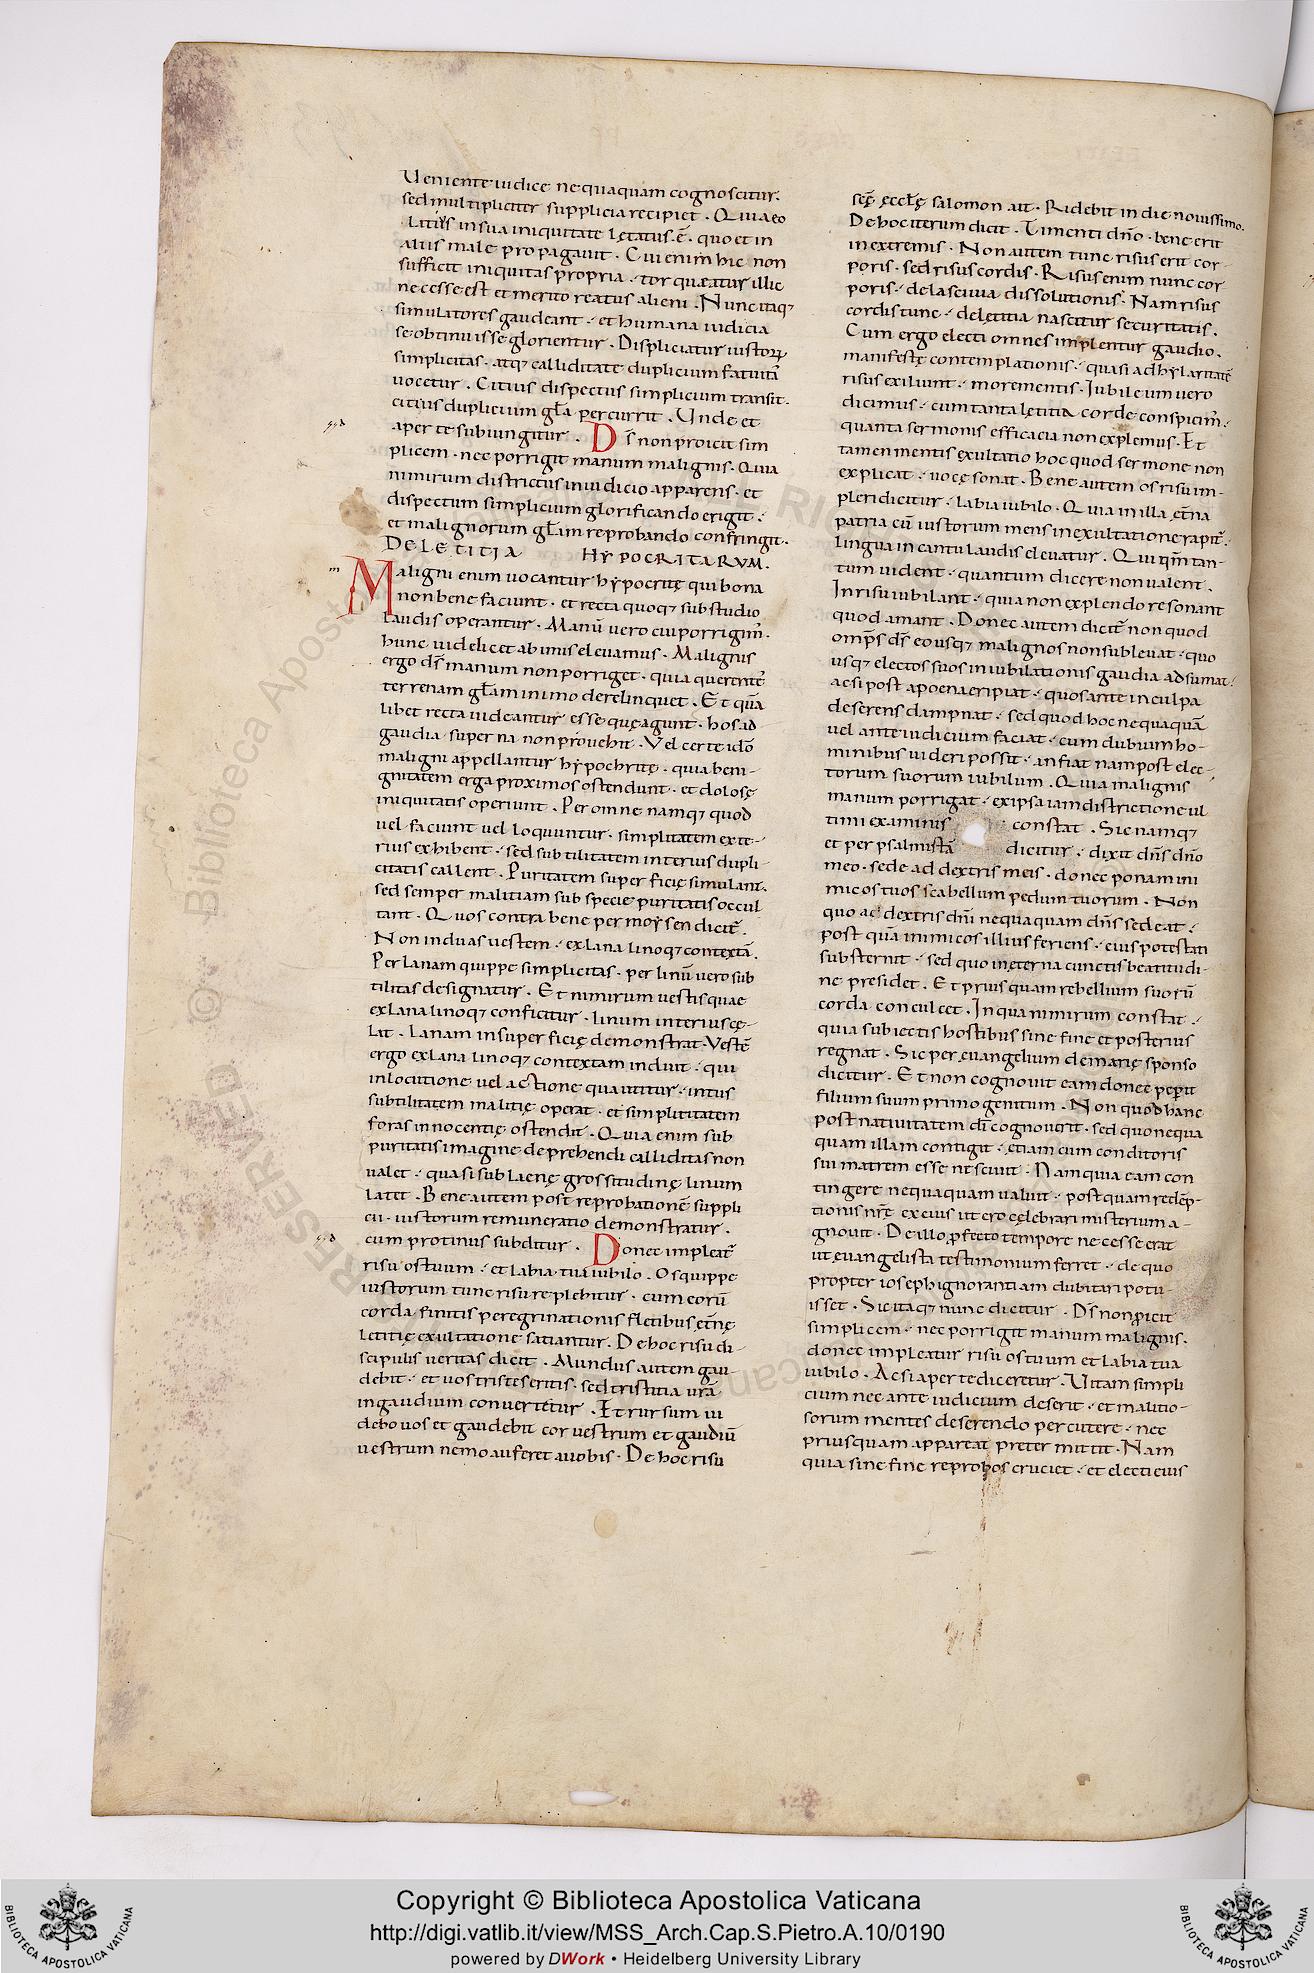 Ueniente iudice nequaquam cognoscitur.
sed multipliciter supplicia recipiet. Quia eo
in sua iniquitate lętatus .ē. quo et in
aliis male propagauit. Cui enim hic non
sufficit iniquitas propria. torqueatur illic
necesse est et merito reatus alieni. Nunc itaq;
simulatores gaudeant. et humana iudicia
se obtinuisse glorientur. Displiciatur iustorꝝ
simplicitas. atq; calliditate duplicium fatuitā
uocetur. Citius dispectus simplicium transit.
citius duplicium gl̄a percurrit. Unde et
aperte subiungitur. D̄s non proicit sim
plicem. nec porrigit manum malignis. Quia
nimirum districtus in iudicio apparens. et
dispectum simplicium glorificando erigit.
et malignorum gl̄am reprobando confringit.
DE LETITIA HYPOCRITARVM.
Maligni enim uocantur hypocritę qui bona
non bene faciunt. et recta quoq; sub studio
laudis operantur. Manū uero cui porrigim̄.
hunc uidelicet ab imis eleuamus. Malignis
ergo d̄s manum non porriget. quia querentē
terrenam gl̄am in imo derelinquet. Et quā
libet recta uideantur esse quę agunt. hos ad
gaudia superna non prouehit. Vel certe idō
maligni appellantur hypochritę. quia beni-
gnitatem erga proximos ostendunt. et dolosę
iniquitatis operiunt. Per omne namq; quod
uel faciunt uel loquuntur. simplitatem exte-
rius exhibent. sed subtilitatem interius dupli-
citatis callent. Puritatem superficię simulant.
sed semper malitiam sub specie puritatis occul
tant. Quos contra bene per moysen dicit̄.
Non induas uestem. ex lana linoq; contextā.
Per lanam quippe simplicitas. per linū uero sub
tilitas designatur. Et nimirum uestis quae
ex lana linoq; conficitur. linum interius cę-
lat. lanam in superficię demonstrat. Vestē
ergo ex lana linoq; contextam induit. qui
in locutione uel actione qua utitur. intus
subtilitatem malitię operat. et simplititatem
foras innocentię ostendit. Quia enim sub
puritatis imagine deprehendi calliditas non
ualet. quasi sub lacnę grossitudinę linum
latet. Bene autem post reprobationē suppli
cii. iustorum remuneratio demonstratur.
cum protinus subditur. Donec impleat̄
risu os tuum. et labia tua iubilo. Os quippe
iustorum tunc risu replebitur. cum eorū
corda finitis peregrinationis fletibus ęt̄nę
letitię exultatione satiantur. De hoc risu di-
scipulis ueritas dicit. Mundus autem gau-
debit. et uos tristes eritis. sed tristitia ur̄a
in gaudium conuertetur. Et rursum ui
debo uos et gaudebit cor uestrum et gaudiū
uestrum nemo auferet a uobis. De hoc risu
sc̄ę ęccl̄ę salomon ait. Ridebit in die nouissimo.
De hoc iterum dicit. Timenti dn̄o. bene erit
in extremis. Non autem tunc risus erit cor-
poris. sed risus cordis. Risus enim nunc cor
poris. de lasciuia dissolutionis. Nam risus
cordis tunc. de lętitia nascitur securitatis.
Cum ergo electi omnes implentur gaudio.
manifestę contemplationis. quasi ad hylaritatē
risus exiliunt. more mentis. Iubileum uero
dicimus. cum tanta lętitia corde conspicim̄.
quanta sermonis efficacia non explemus. Et
tamen mentis exultatio hoc quod sermone non
explicat. uocę sonat. Bene autem os risu im-
pleri dicitur. labia iubilo. Quia in illa ęt̄na
patria cū iustorum mens in exultatione rapit̄.
lingua in cantu laudis eleuatur. Qui qm̄ tan-
tum uident. quantum dicere non ualent.
In risu iubilant. quia non explendo resonant
quod amant. Donec autem dicit̄ non quod
omp̄s d̄s eousq; malignos non subleuat. quo
usq; electos suos in iubilationis gaudia adsumat.
ac si post a poena eripiat. quos ante in culpa
deserens dampnat. sed quod hoc nequaquā
uel ante iudicium faciat. cum dubium ho-
minibus uideri possit. an fiat nam post elec-
torum suorum iubilum. Quia malignis
manum porrigat. ex ipsa iam districtione ul
timi examinis constat. Sic namq;
et per psalmistā dicitur. dixit dn̄s dn̄o
meo. sede ad dextris meis. donec ponam ini
micos tuos scabellum pedum tuorum. Non
quo ac dextris dn̄i nequaquam dn̄s sedeat.
post quā inimicos illius feriens. eius potestati
substernit. sed quo in ęterna cunctis beatitudi-
ne presidet. Et prius quam rebellium suorū
corda conculcet. In qua nimirum constat.
quia subiectis hostibus sine fine et posterius
regnat. Sic per euangelium de marię sponso
dicitur. Et non cognouit eam donec peperit
filium suum primogenitum. Non quod hanc
post natiuitatem dn̄i cognouerit. sed quo nequa
quam illam contigit. etiam cum conditoris
sui matrem esse nesciuit. Nam quia eam con
tingere nequaquam ualuit. postquam redēp-
tionis nr̄ę ex eius utero cęlebrari misterium a-
gnouit. De illo ꝓfecto tempore necesse erat
ut euangelista testimonium ferret. de quo
propter ioseph ignorantiam dubitari potu-
isset. Sic itaq; nunc dicitur. D̄s non ꝓicit
simplicem. nec porrigit manum malignis.
donec impleatur risu os tuum et labia tua
iubilo. Ac si aperte diceretur. Uitam simpli
cium nec ante iudicium deserit. et malitio-
sorum mentes deserendo percutere. nec
priusquam appareat preter mittit. Nam
quia sine fine reprobos cruciet. et electi eius
Copyright © Biblioteca Apostolica Vaticana
http://digi.vatlib.it/view/MSS_Arch.Cap.S.Pietro.A.10/0190
powered by DWork • Heidelberg University Library